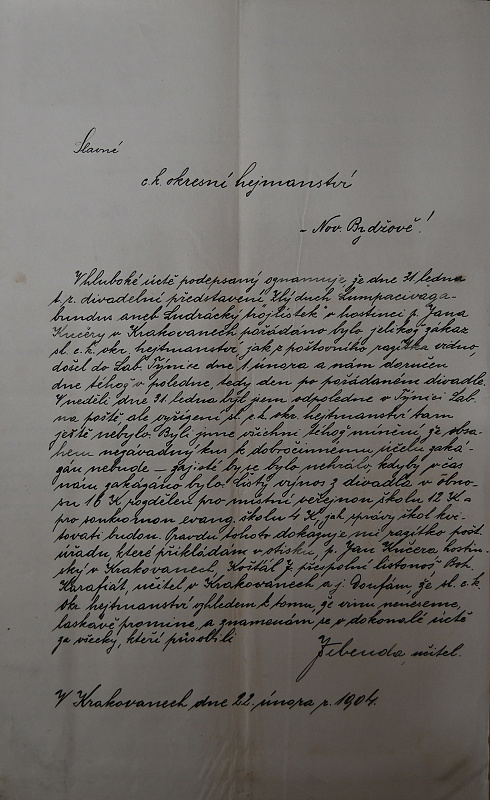 Slavné
c.k. okresní hejmanství
- Nov. Bydžově!
V hluboké úctě podepsaný oznamuje že dne 31. ledna
t. r. divadelní představení Zlý duch Lumpacivaga-
bundus aneb Ludrácký trojlístek v hostinci p. Jana
Kučery v Krakovanech pořádáno bylo jelikož zákaz
sl. c. k. okr. hejtmanství, jak z poštovního razítka vidno,
došel do Lab. Týnice dne 1. února a nám doručen
dne téhož v poledne, tedy den po pořádaném divadle.
V neděli dne 31. ledna byl jsem odpoledne v Týnici Lab.
na poště, ale vyřízení sl. c. k. okr. hejtmanství tam
ještě nebylo. Byli jsme všichni téhož mínění, že obsa-
hem nezávadný kus k dobročinnému účelu zaká-
zán nebude – zajisté by se bylo nehrálo, kdyby v čas
nám zakázáno bylo. Čistý výnos z divadla v obno-
su 16 K rozdělen pro místní veřejnou školu 12 K a
pro soukromou evang. školu 4 K, jak správy škol kvi-
tovati budou. Pravdu tohoto dokazuje mi razítko pošt.
úřadu, které přikládám v otisku, p. Jan Kučera hostin-
ský v Krakovanech, Košťál J. přespolní listonoš Boh.
Karafiát, učitel v Krakovanech a j. Doufám, že sl. c. k.
okr. hejtmanství vzhledem k tomu, že vinu neneseme,
laskavě promine, a znamenám se v dokonalé úctě
za všecky, kteří působili
Jebenda, učitel.
V Krakovanech dne 22. února r. 1904.